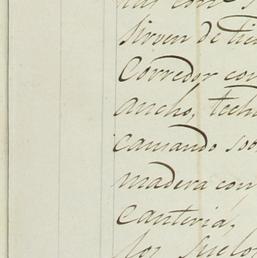 las con
sirven de
Corredor con
ancho, tech
camando so
madera con
Canteria,
los suelo